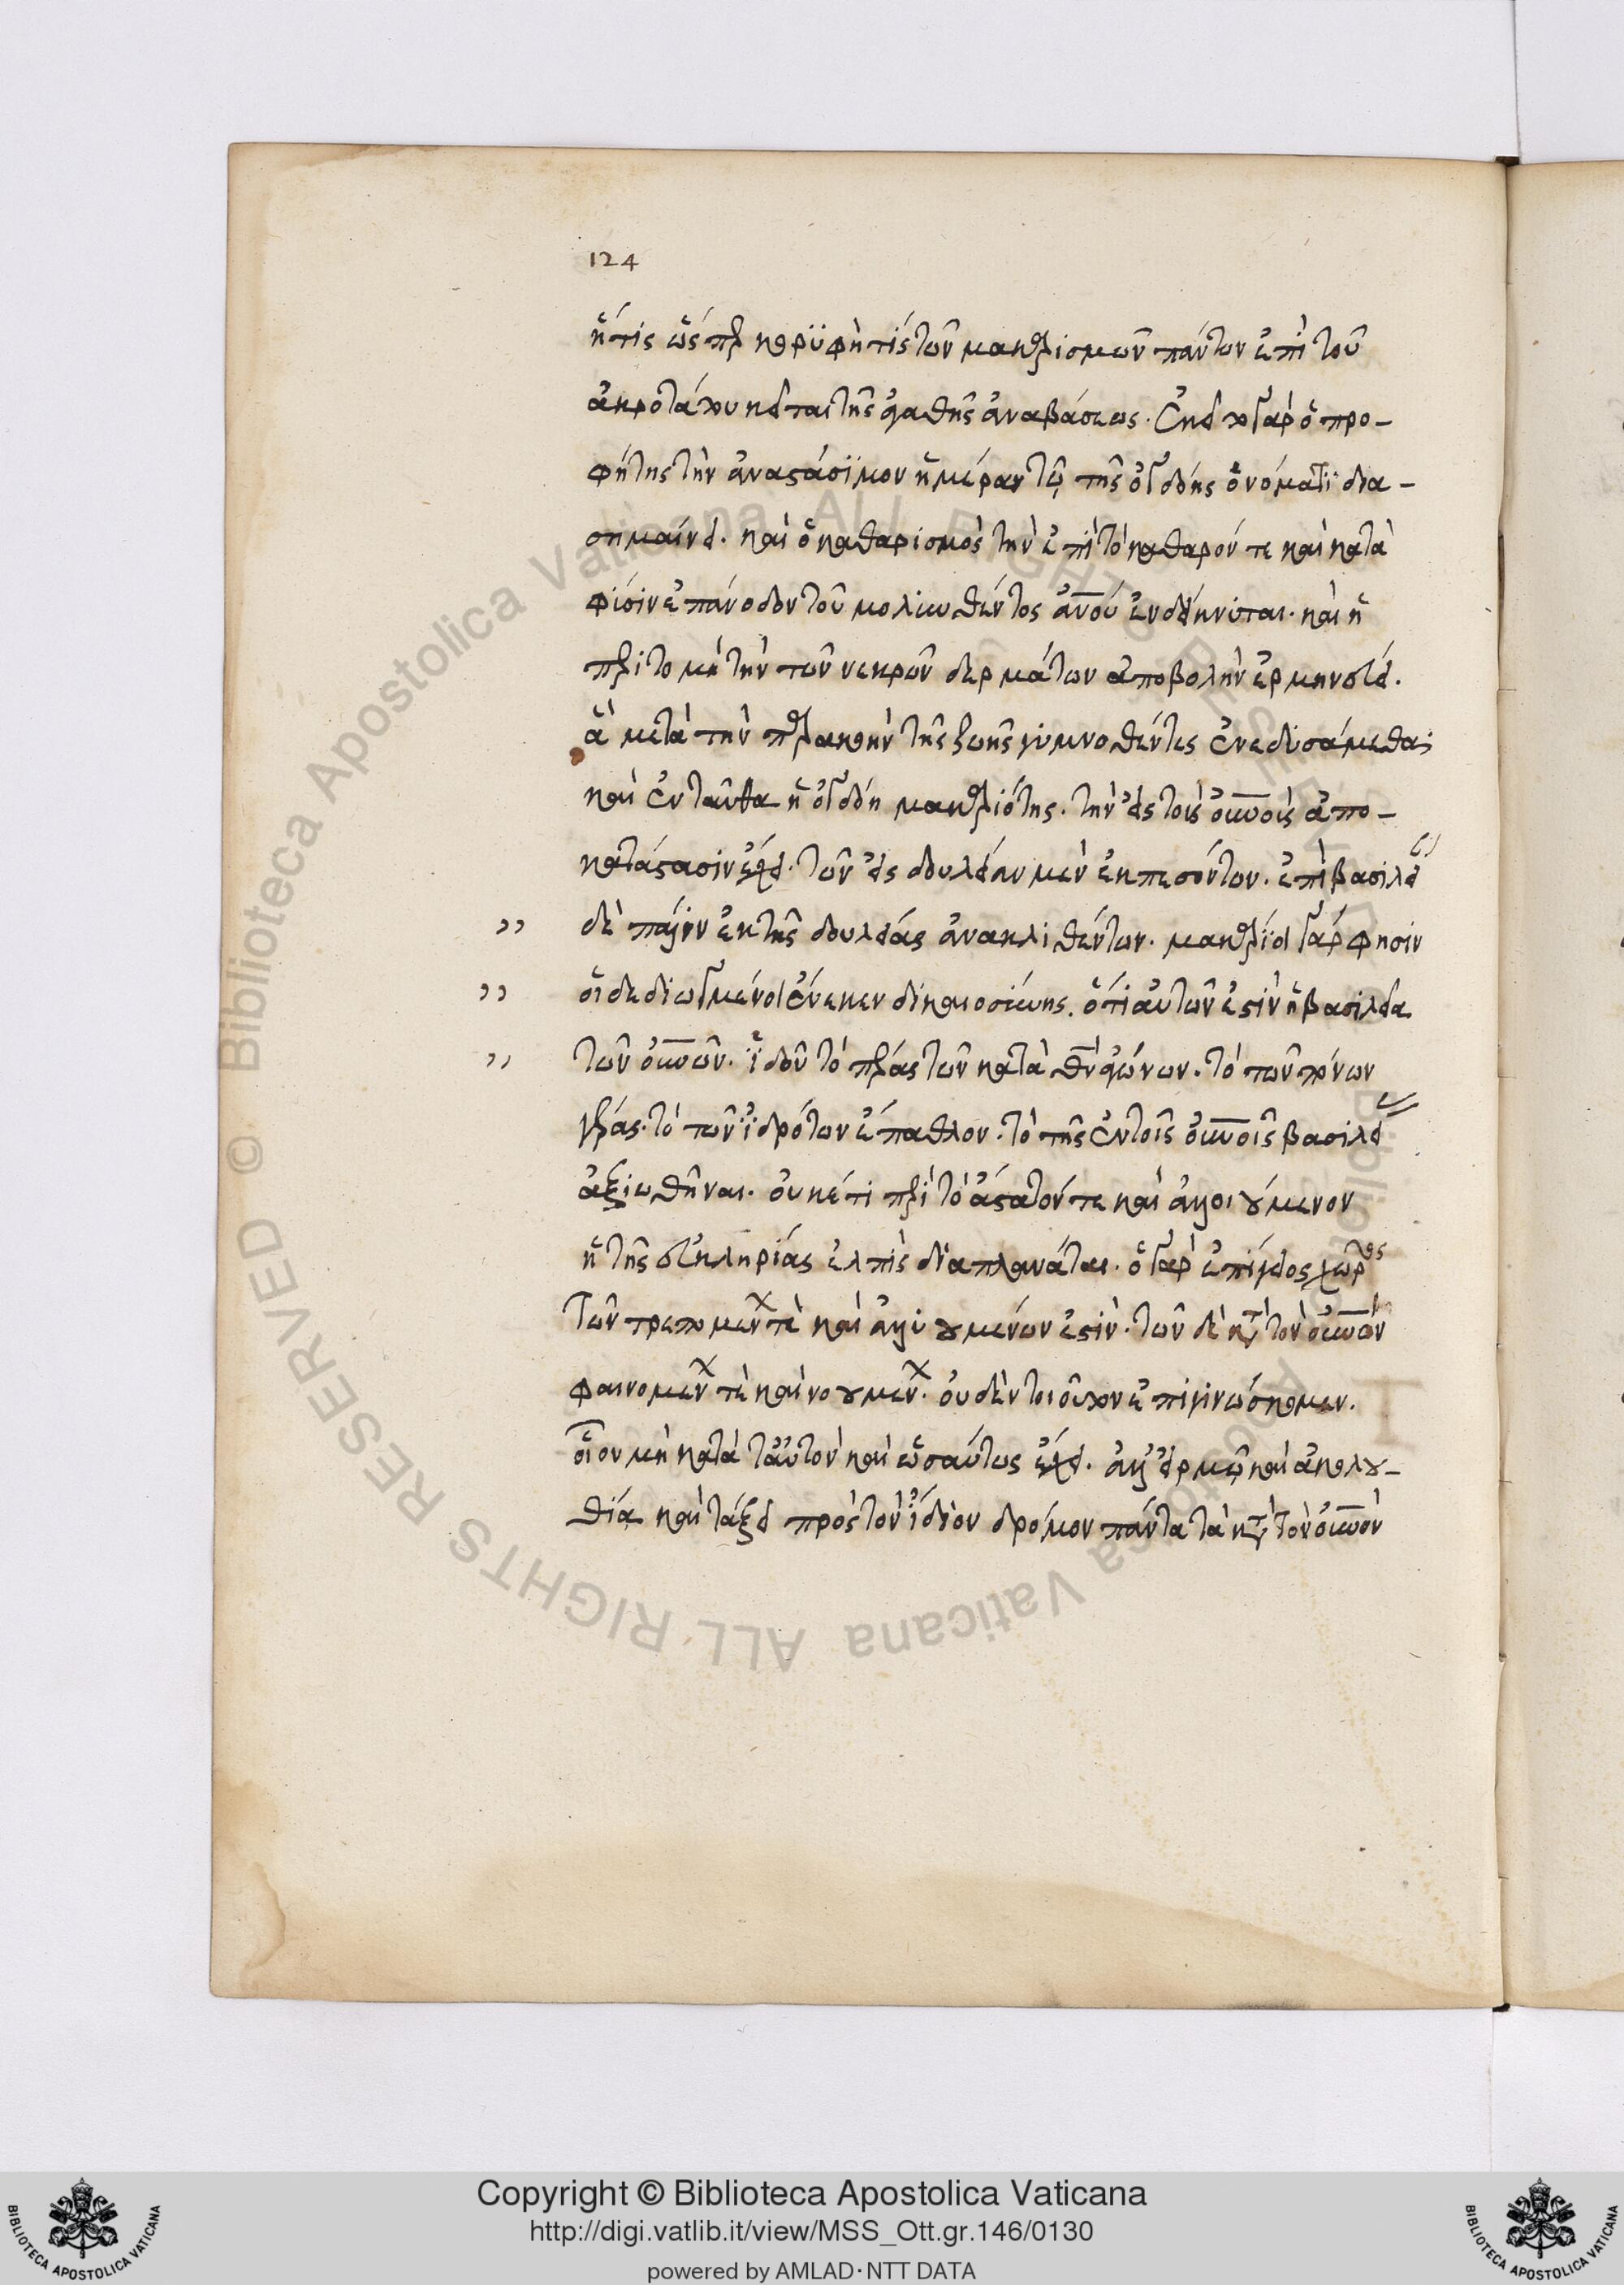 124
ἥτις ὥσπερ κορϋφή τίς τῶν μακαρισμῶν πάντων ἐπὶ τοῦ
ἀκροτάτου κεῖται τῆς ἀγαθῆς ἀναβάσεως. Ἐκεῖ τε γὰρ ὁ προ-
φήτης τὴν ἀναστάσϊμον ἡμέραν τῷ τῆς ὀγδόης ὀνόματϊ δια-
σημαίνει. καὶ ὁ καθαρισμὸς τὴν ἐπὶ τὸ καθαρόν τε καὶ κατὰ
φύσιν ἐπάνοδον τοῦ μολυνθέντος ἀνου ἐνδείκνυται. καὶ ἡ
περιτομὴ τὴν τῶν νεκρῶν δερμάτων ἀποβολὴν ἑρμηνεύει.
ἃ μετὰ τὴν παρακοὴν τῆς ζωῆς γυμνοθέντες ἐνεδυσάμεθα;
καὶ ἐνταῦθα ἡ ὀγδόη μακαριότης. τὴν εἰς τοὺς οὐνοὺς ἀπο-
κατάστασιν ἔχει. τῶν εἰς δουλείαν μὲν ἐκπεσόντων. ἐπὶ βασιλεί
δὲ πάλιν ἐκ τῆς δουλείας ἀνακλιθέντων. μακάριοι γάρ φησιν
οἱ δεδιωγμένοι ἕνεκεν δικαιοσύνης. ὅτι αὐτῶν ἐστὶν ἡ βασιλεία
τῶν οὐνῶν. ϊδοῦ τὸ πέρας τῶν κατὰ θν ἀγώνων. τὸ τῶν πόνων
γέρας. τὸ τῶν ϊδρότων ἔπαθλον. τὸ τῆς ἐν τοῖς οὐνοῖς βασιλεί
ἀξιωθῆναι. οὐκέτι περὶ τὸ ἄστατόν τε καὶ ἀλλοιούμενον
ἡ τῆς σκληρίας ἐλπὶς διαπλανάται. ὁ γὰρ ἐπίγειος χῶρος
τῶν τρεπομένων τὲ καὶ ἀλλυουμένων ἐστὶν. τῶν δὲ κατὰ τὸν οὐνὸν
φαινομένων τὲ καὶ νοουμένων. οὐδὲν τοιοῦτον ἐπιγινώσκομεν.
οἷον μὴ κατὰ ταὐτὸν καὶ ὡσαύτως ἔχει. ἀλλ' εἱρμῷ καὶ ἀκολου-
θία καὶ τάξει πρὸς τὸν ἴδιον δρόμον πάντα τὰ κατὰ τὸν οὐνὸν
Copyright © Biblioteca Apostolica Vaticana
http://digi.vatlib.it/view/MSS_Ott.gr.146/0130
powered by AMLAD·NTT DATA
BIBLIOTECA APOSTOLICA VATICANA
BIBLIOTECA APOSTOLICA VATICANA